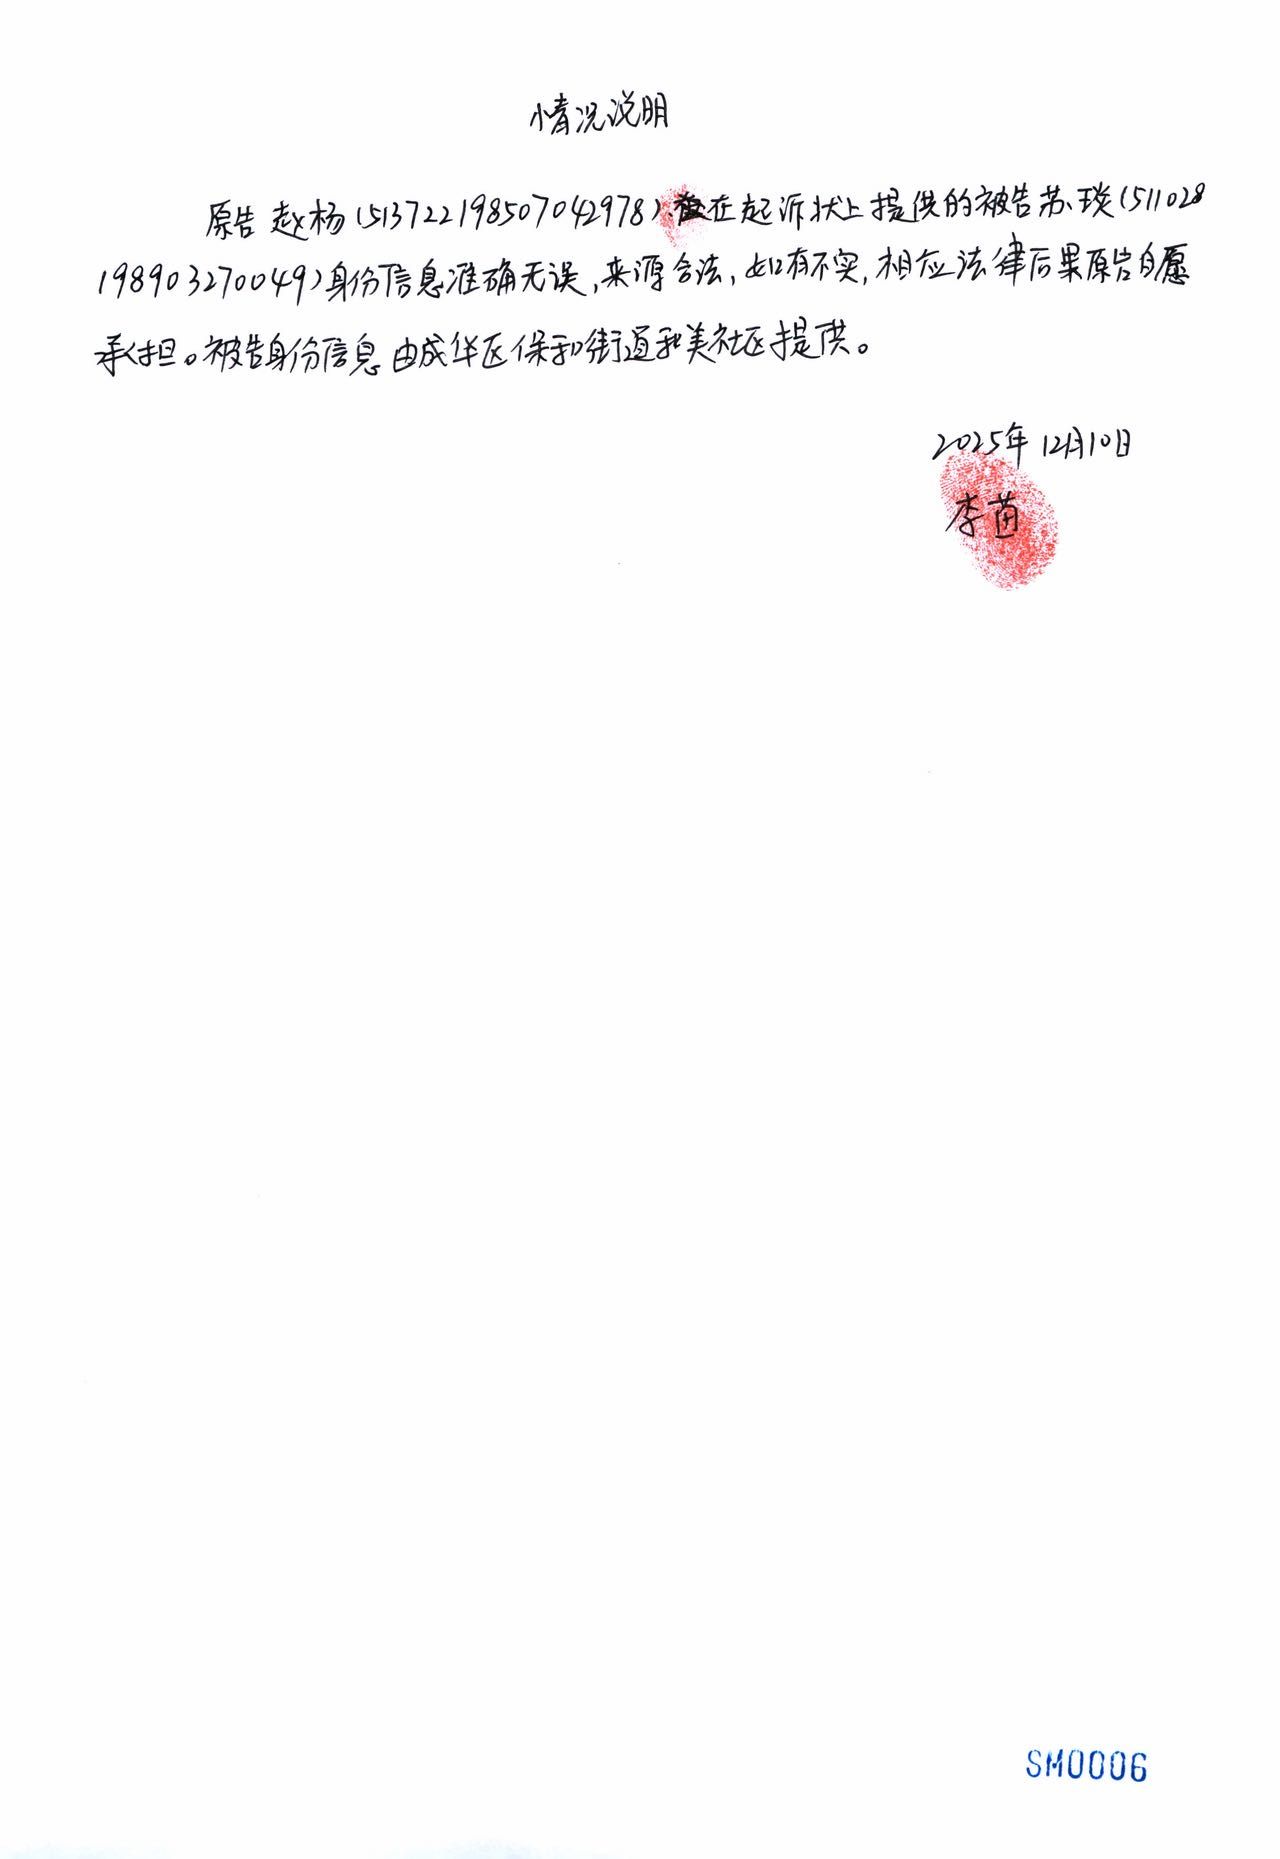 情况说明
原告赵杨(513722198507042978)、在起诉状上提供的被告苏琰(511028
198903270049)身份信息准确无误,来源合法,如有不实,相应法律后果原告自愿
承担。被告身份信息由成华区保和街道和美社区提供。
2025年12月10日
李苗
SM0006